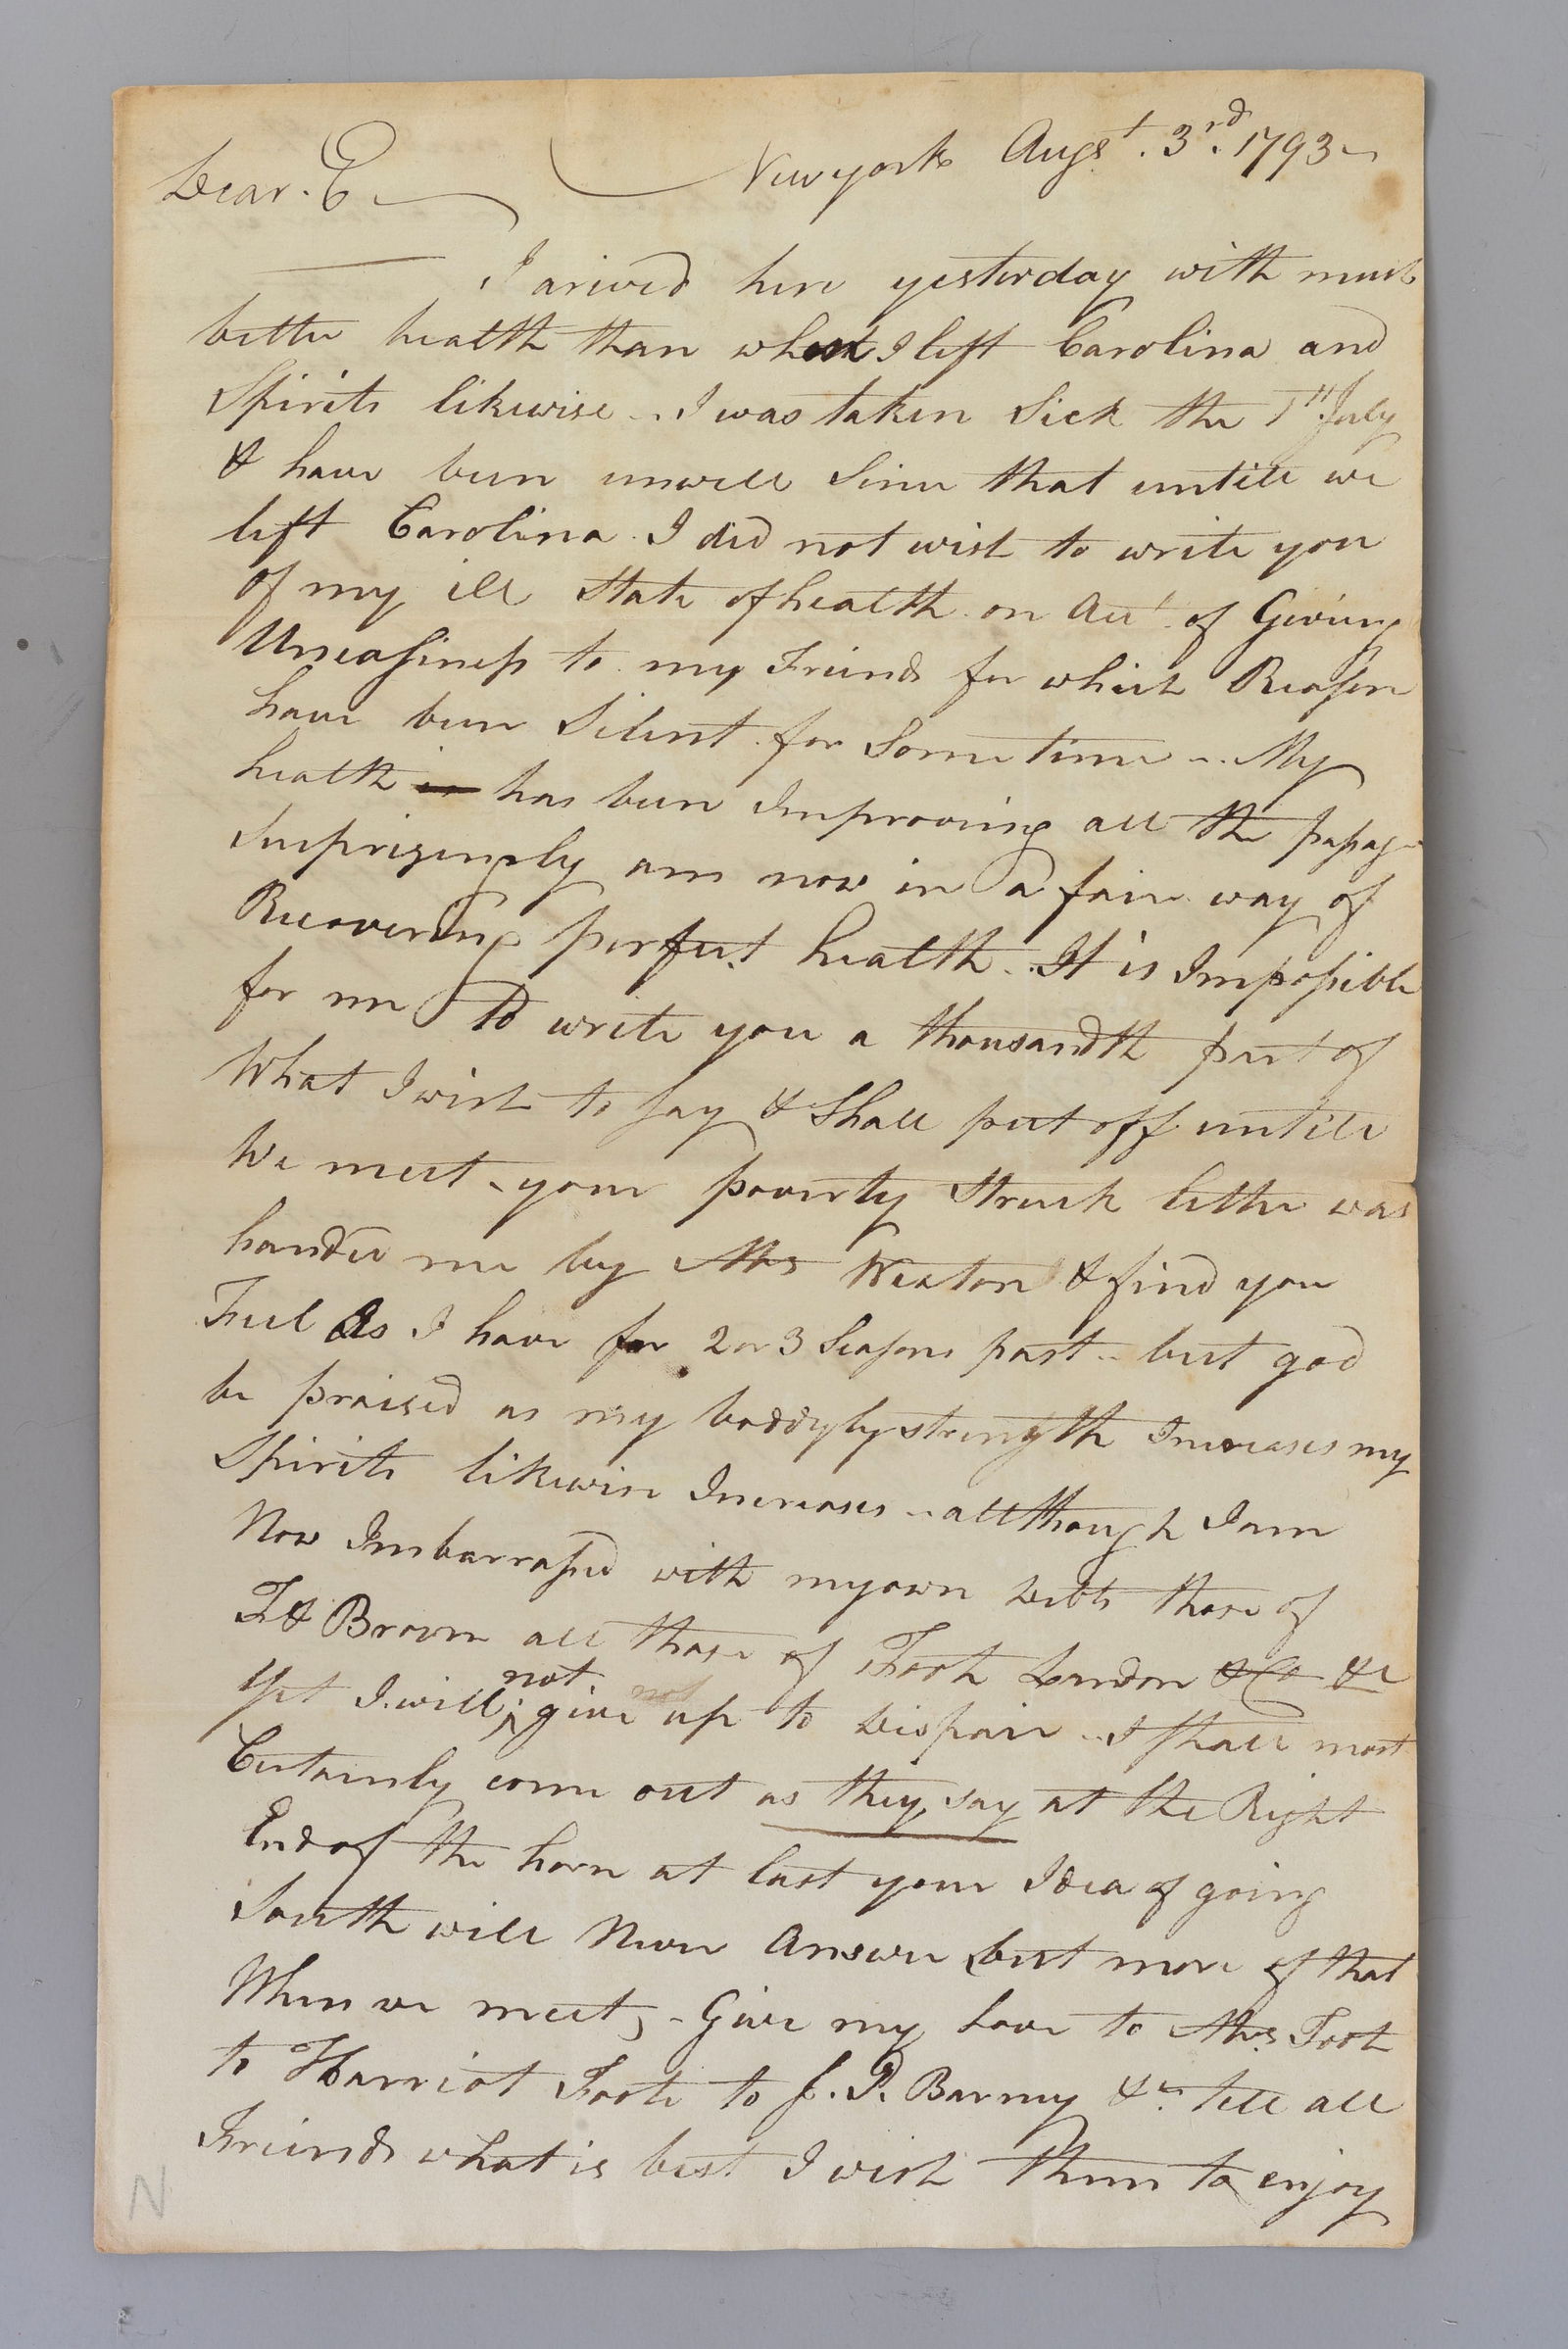 Newyork Augst. 3rd. 1793
Dear. E
I arived here yesterday with much
better health than when I left Carolina and
Spirits likewise I was taken Sick the 1st July
& have been unwell Since that untill we
left Carolina. I did not wish to write you
of my ill state of health on Acct. of Giveing
Uneasiness to my Friends for which Reason
have been Silent for Some time My
health is has been Improveing all the passage
Surprizingly am now in a fair way of
Recovering perfect health. It is Impossible
for me to write you a thousandth part of
What I wish to say & Shall put off untill
We meet your poverty struck letter was
handed me by Mrs & find you
Feel as I have for 2 or 3 Seasons past but god
be praised as my boddyly strength Increases my
Spirits likewise Increases allthough I am
Now Imbarrassed with my own Debts those of
F & Brown all those of Foot London & Co &c
Yet I will not give up to Dispair I shall most
Certainly come out as they say at the Right
End of the horn at last your Idea of going
South will Never Answer but more of that
When we meet, Give my Love to Mrs Foot
to Harriot Foote to J. P. Barney &c. tell all
Friends what is best I wish them to enjoy
N